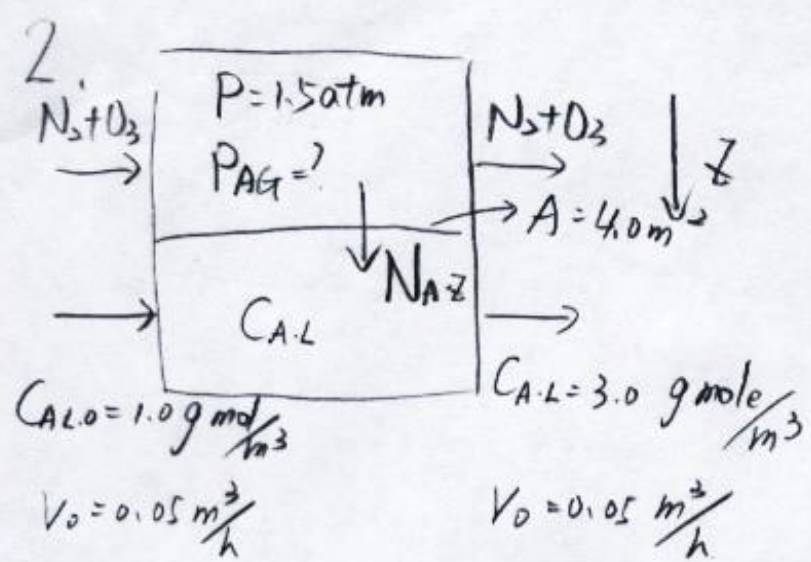 2.
N₂+O₃
P=1.5atm
P_AG=?
N₂+O₃
Z
A=4.0m²
N_A·Z
C_A·L
C_AL.0=1.0 g mol/m³
C_A·L=3.0 g mole/m³
V₀=0.05 m³/h
V₀=0.05 m³/h